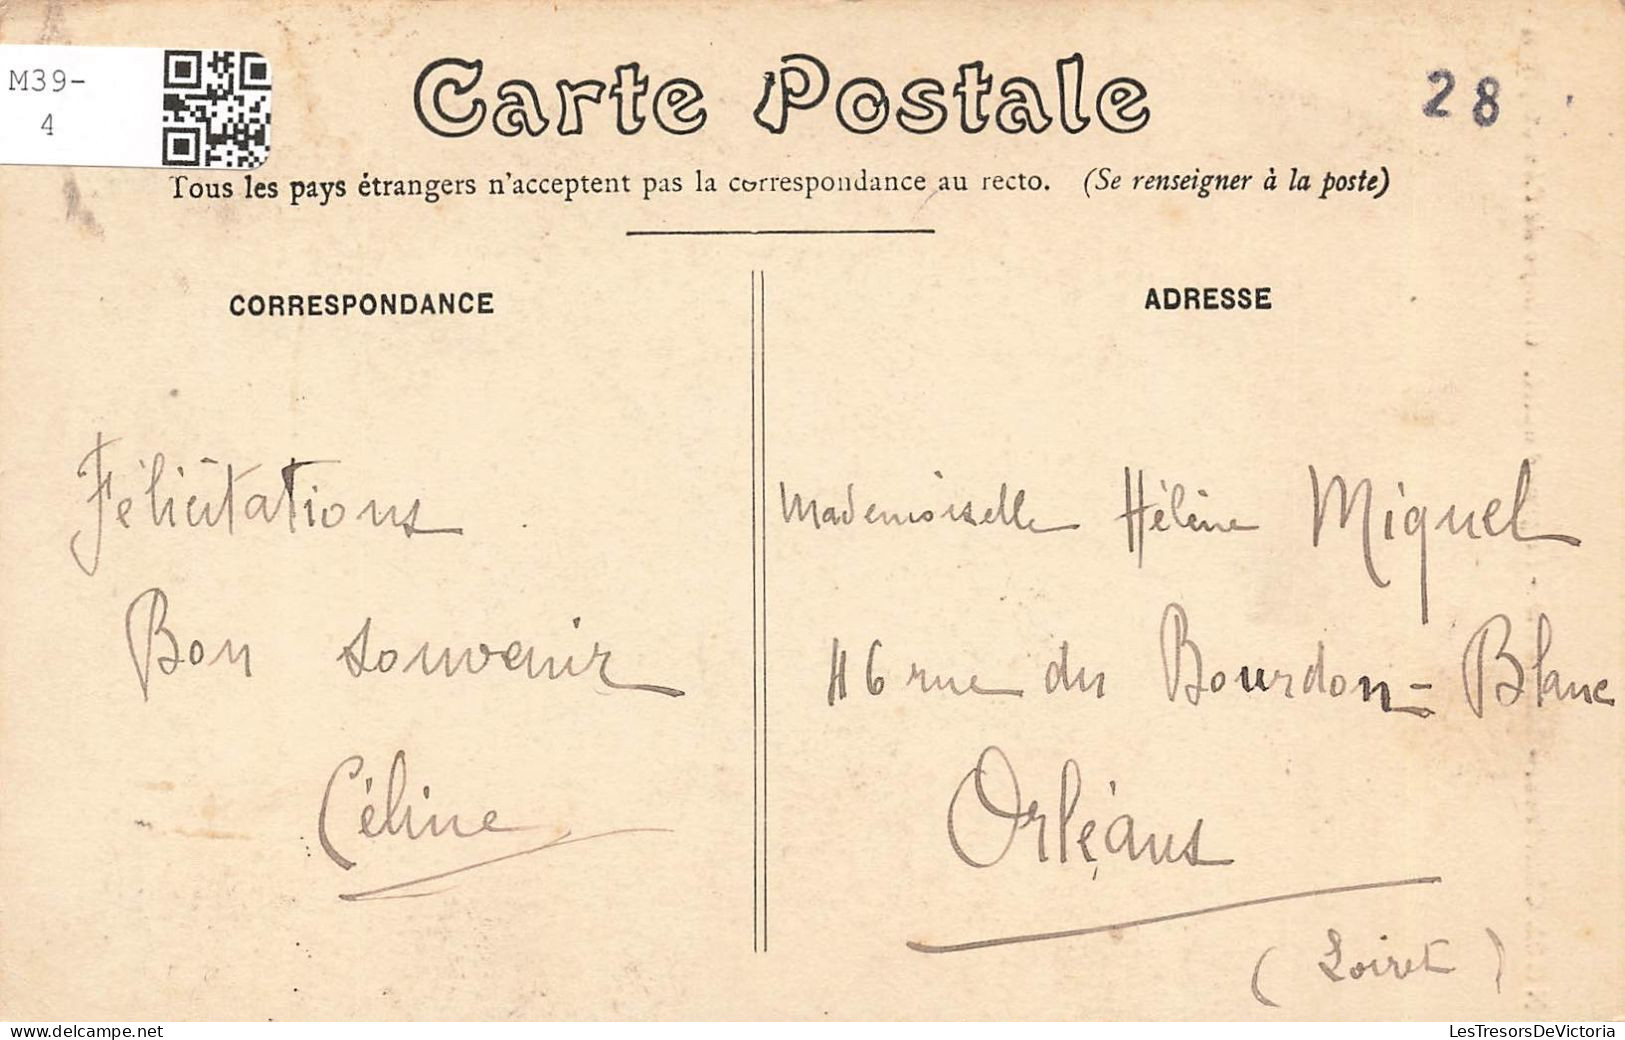 M39-
4
Carte Postale
28
Tous les pays étrangers n'acceptent pas la correspondance au recto. (Se renseigner à la poste)
CORRESPONDANCE
Félicitations
Bon souvenir
Céline
ADRESSE
Mademoiselle Hélène Miquel
46 rue du Bourdon-Blanc
Orléans
(Loiret)
LesTresorsDeVictoria